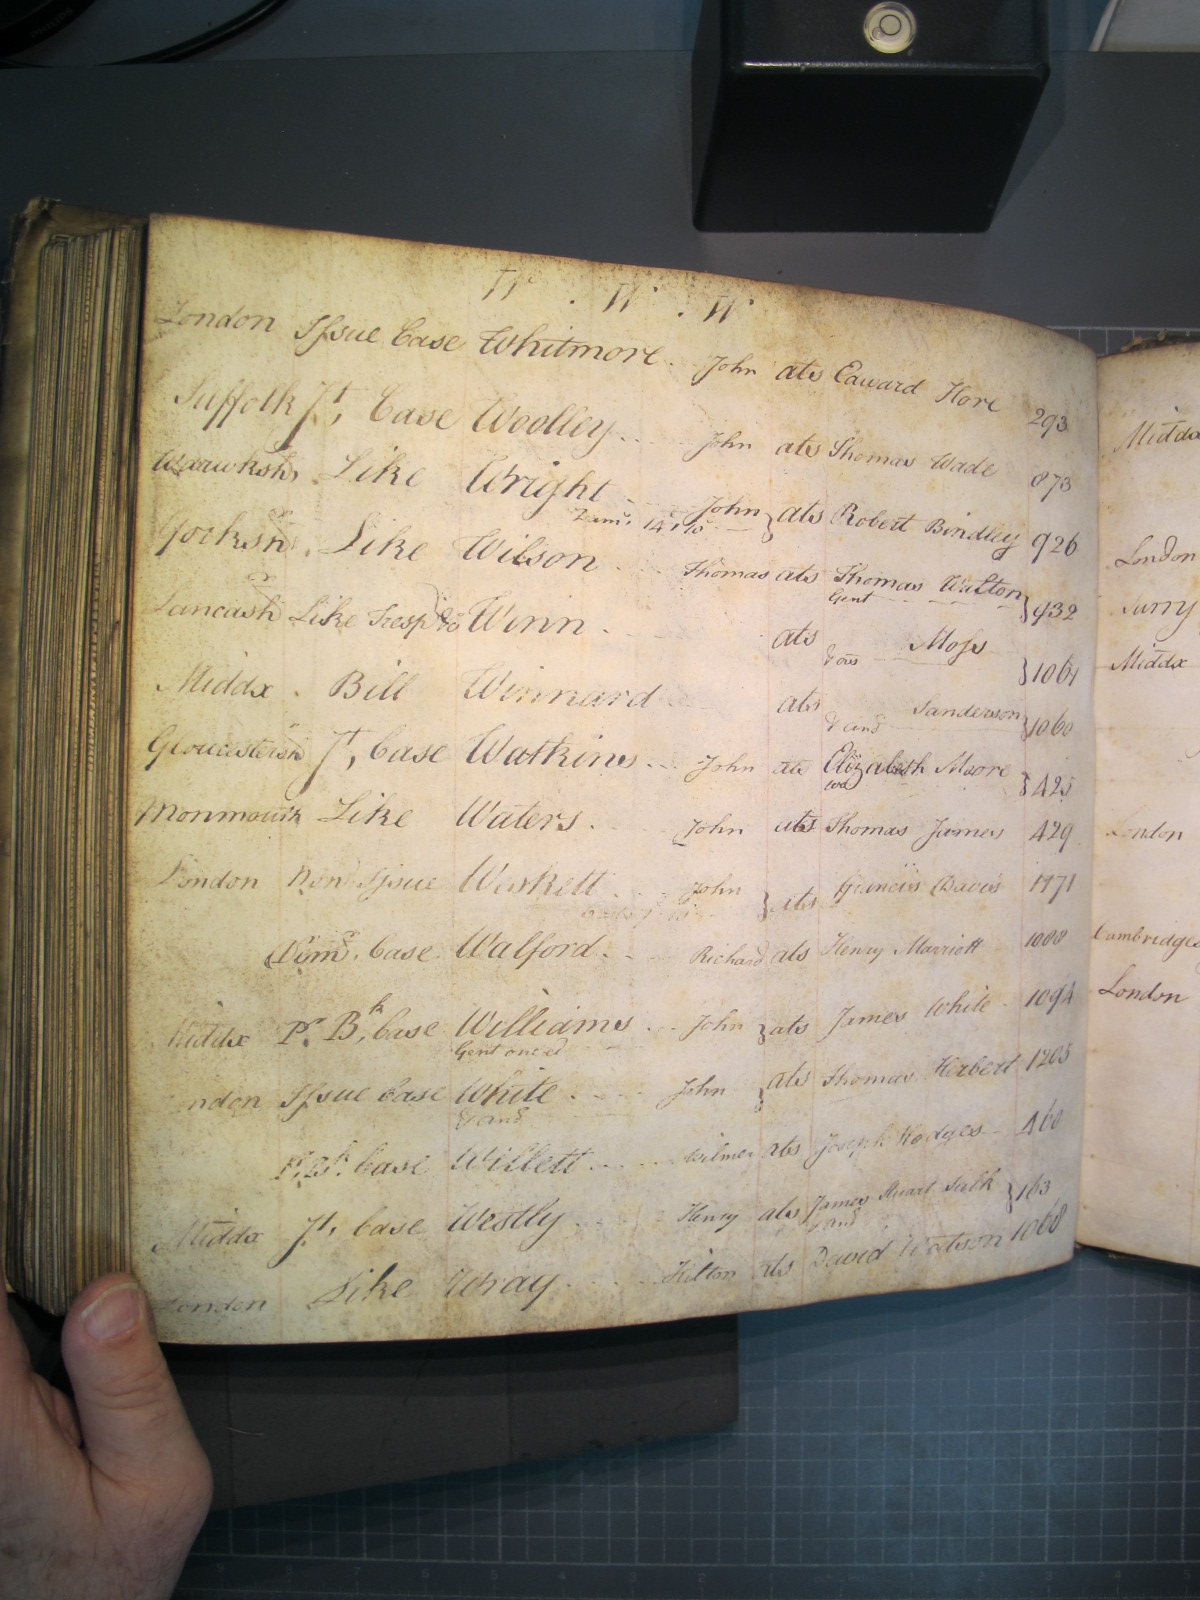 W . W . W
London Issue Case Whitmore . John ats Edward Hore 293
Suffolk Jt, Case Woolley .. John ats Thomas Wade 873
Warwksh, Like Wright .. John } ats Robert Bindley 926
Yorksh, Like Wilson .. Thomas ats Thomas Walton } 932
Gent
Lancash Like Tresp Winn . ats Moss } 1061
Middx . Bill Winnard ats Sanderson } 1060
& anr
Gloucestersh Jt, Case Watkins .. John ats Elizabeth Moore } 425
Monmouth Like Waters . John ats Thomas James 429
London Non Issue Weskett .. John } ats Francis Davis 1171
Case Walford .. Richard ats Henry Marriott 1088
Middx Pr. Bh, Case Williams .. John } ats James White 1094
Gent one &c
London Issue Case White .. John } ats Thomas Herbert 1205
& anr
Case Willett .. Wilmer ats Joseph Hodges 460
Middx Jt, Case Westly .. Henry ats James Stuart Tulk } 163
& anr
London Like Wray .. Hilton ats David Watson 1068
Middx
London
Surry
Middx
London
Cambridges
London